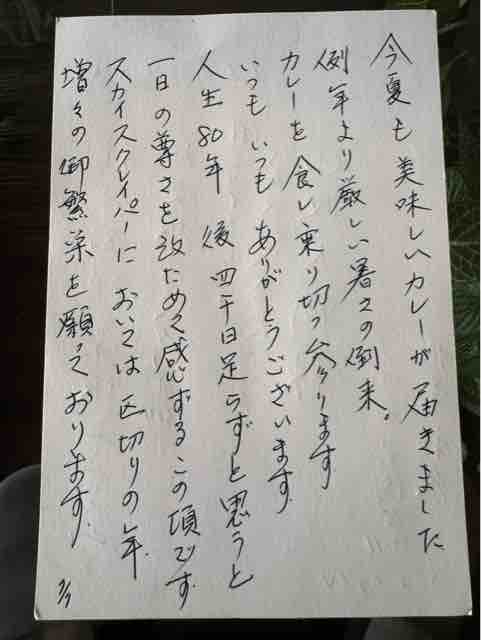 今夏も美味しいカレーが届きました
例年より厳しい暑さの倒来。
カレーを食し乗り切って参ります
いつもいつもありがとうございます
人生80年 後四千日足らずと思うと
一日の尊さを改ためて感ずるこの頃です
スカイスクレイパーにおいては区切りの年.
増々の御繁栄を願っております.